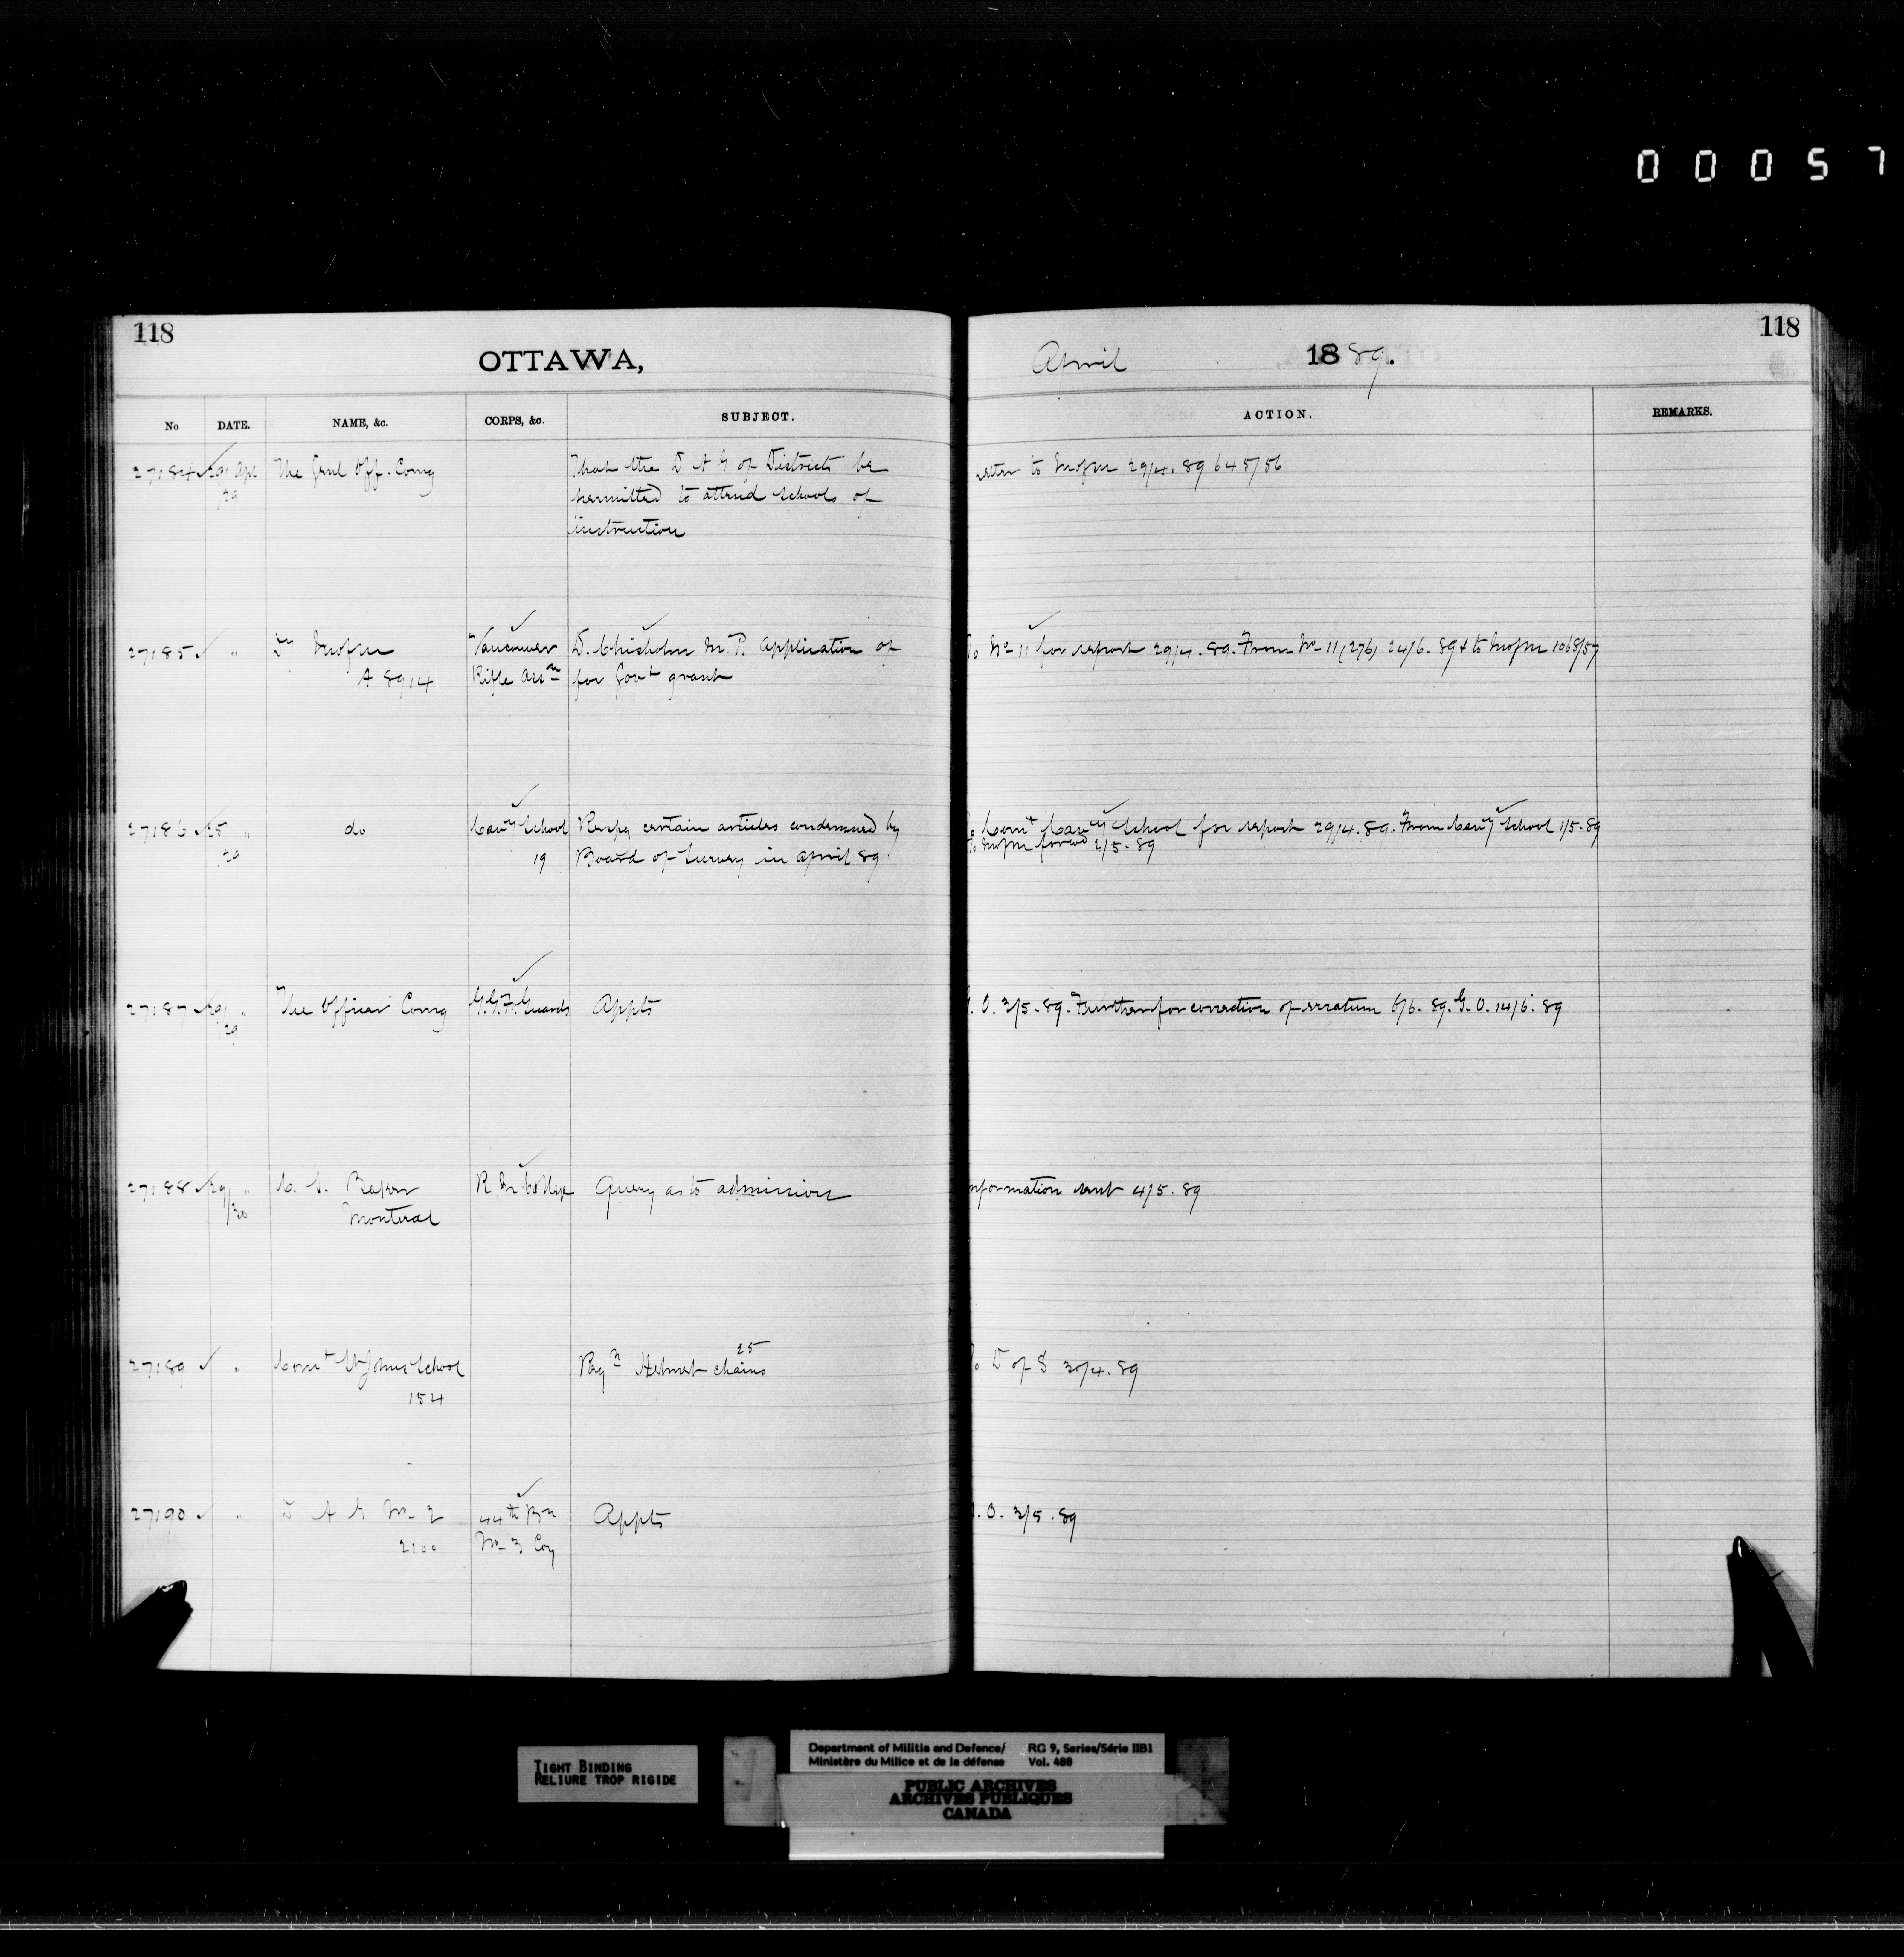 00057
118
OTTAWA,
April 1889.
118
No DATE. NAME, &c. CORPS, &c. SUBJECT. ACTION. REMARKS.
27184 29/29 Apl The Genl Off. Comg That the D A G of Districts be
permitted to attend schools of
instruction
to MofM 29/4.89 645/56
27185 " Dy MofM Vancouver D. Chisholm M.P. application of No 11 for report 29/4.89. From No 11 (276) 24/6.89 & to MofM 1068/57
A 8914 Rifle Assn for Govt grant
27186 25/29 " do Cavy School Respg certain articles condemned by Comt Cavy School for report 29/4.89. From Cavy School 1/5.89
19 Board of Survey in April 89. To MofM forwd 2/5.89
27187 29/29 " The Officer Comg G.G.F. Guards Appts G.O. 3/5.89. Further for correction of erratum 6/6.89. G.O. 14/6.89
27188 29/30 " Baker R M College Query as to admission information sent 4/5.89
Montreal
27189 " Comt St Johns School Reqn Helmet chains 25 To D of S 30/4.89
154
27190 " D A G No 2 44th Bn Appts G.O. 3/5.89
2100 No 3 Coy
TIGHT BINDING
RELIURE TROP RIGIDE
Department of Militia and Defence/ RG 9, Series/Série IIB1
Ministère du Milice et de la défense Vol. 488
PUBLIC ARCHIVES
ARCHIVES PUBLIQUES
CANADA